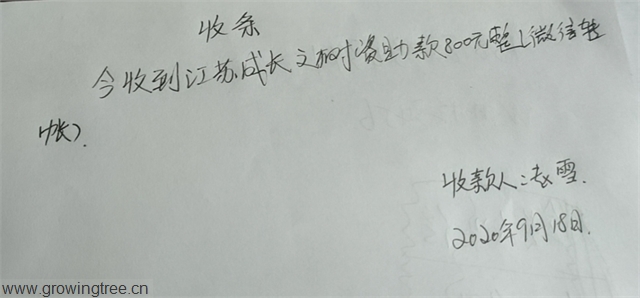 收条
今收到江苏成长之树资助款800元整(微信转
帐).
收款人:赵雪.
2020年9月18日.
www.growingtree.cn